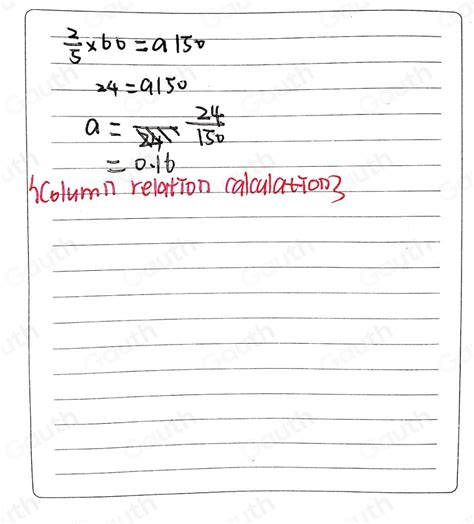 2/5 × 60 = a 150
24 = a150
a = 24/150
= 0.16
{Column relation calculation}